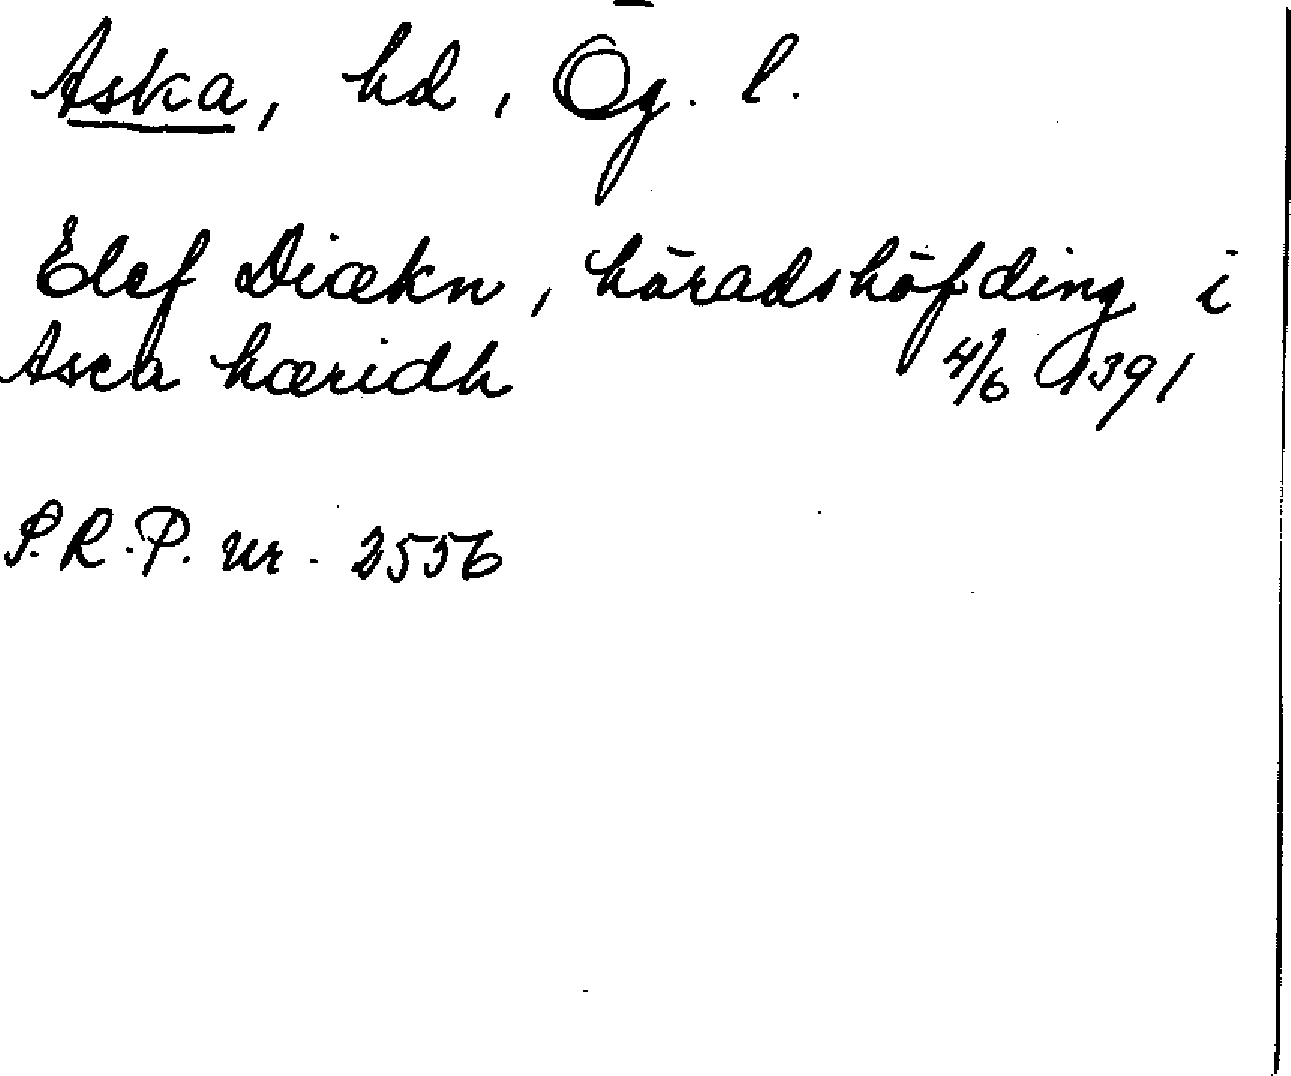 Aska, hd, Ög. l.
Elef Diækn, häradshöfding i
Asca hæridh 4/6 1391
S.R.P. nr. 2556